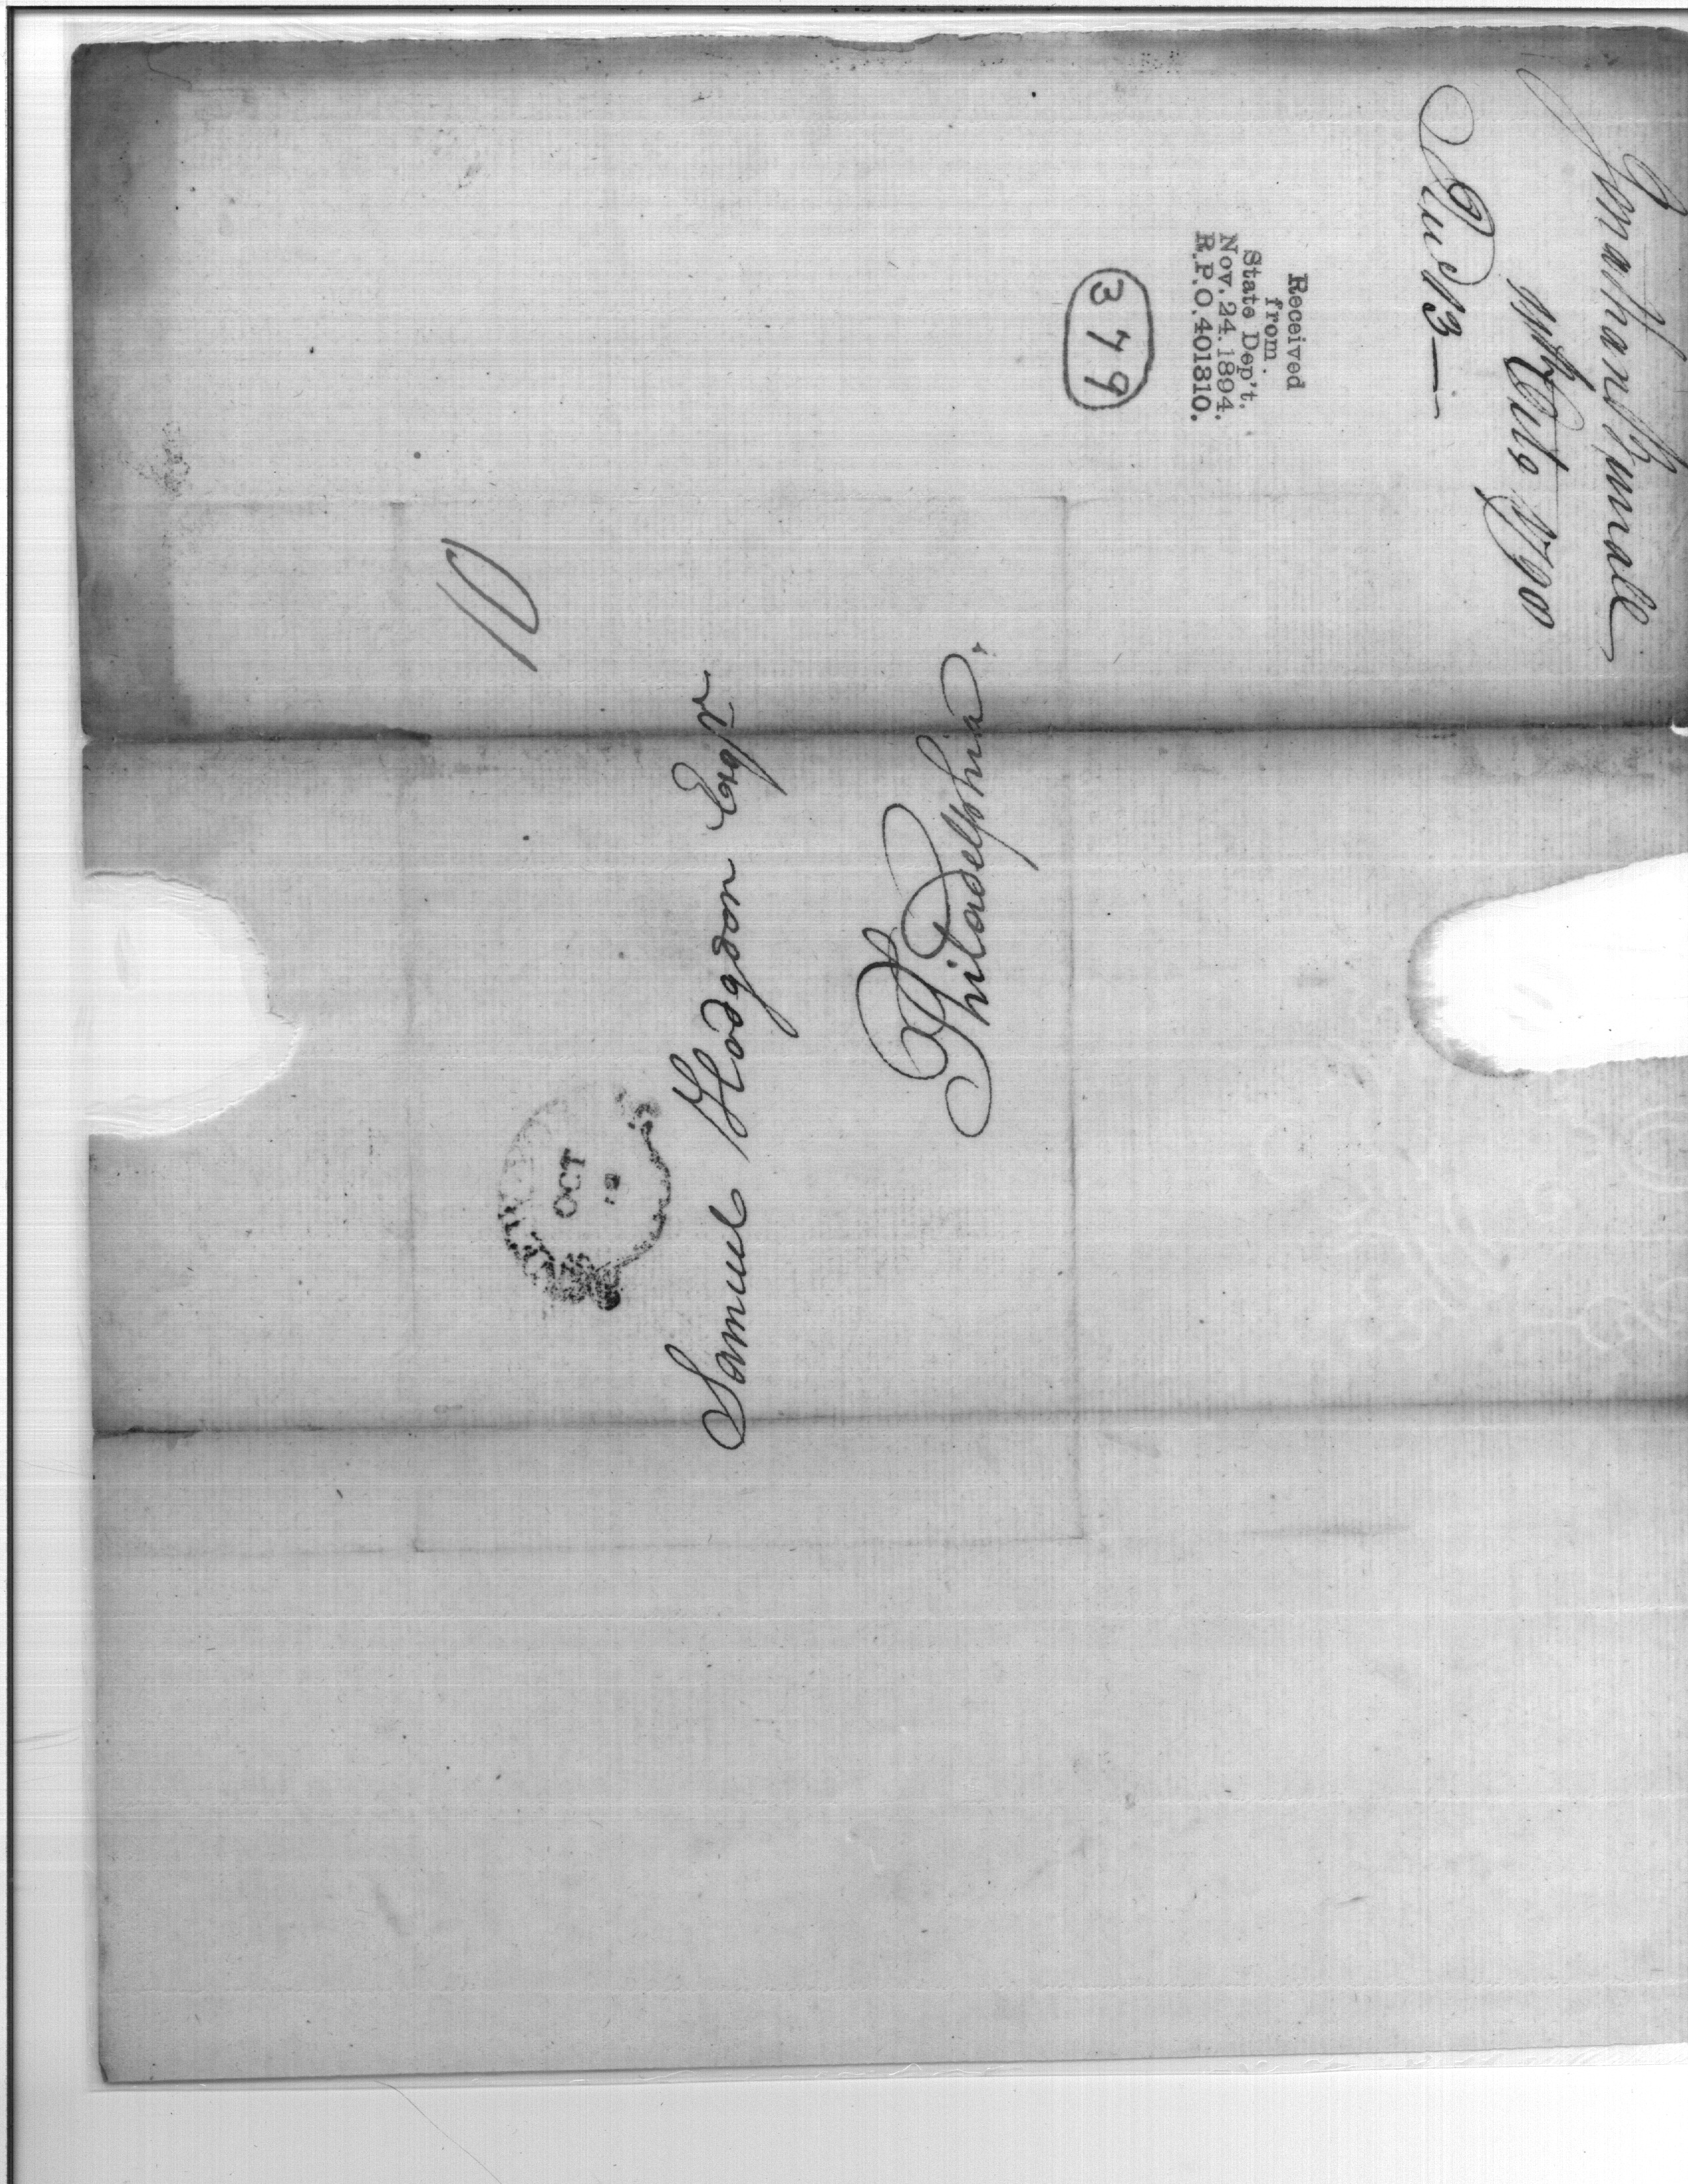 Jonathan Bunall
11th Octo 1790
Recd 13 —
Received
from
State Dep't.
Nov. 24. 1894.
R.P.O. 401310.
379
10
OCT
12
Samuel Hodgdon Esqr
Philadelphia.